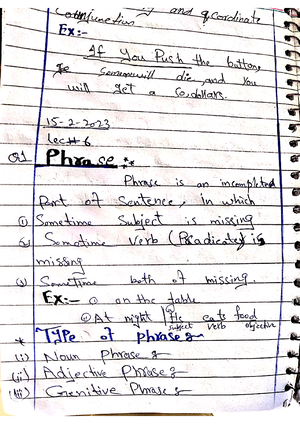 Conjunction and Coordinate
Ex:-
If You Push the button,
Someone will die and You
will get a Co.dollars.
15-2-2023
Lec# 6
Q1 Phrase:-
Phrase is an incompleted
Part of Sentence, In which
(1) Sometime Subject is missing
Sometime verb (Pradicate) is
missing
(3) Sometime both of missing.
Ex:- ① on the table
② At night | He eats food
subject verb objective
* Type of phrase:-
(i) Noun Phrase:-
(ii) Adjective Phrase:-
(iii) Genitive Phrase:-